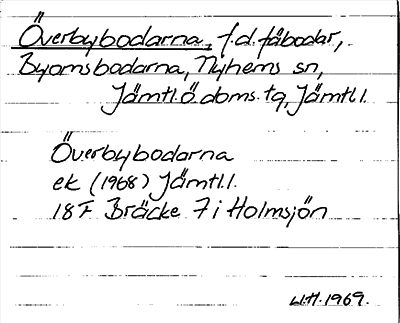 Överbybodarna, f.d. fäbodar,
Byomsbodarna, Nyhems sn,
Jämtl.ö.doms.tg, Jämtl.l.
Överbybodarna
ek (1968) Jämtl.l.
18F Bräcke 7i Holmsjön
W.H. 1969.